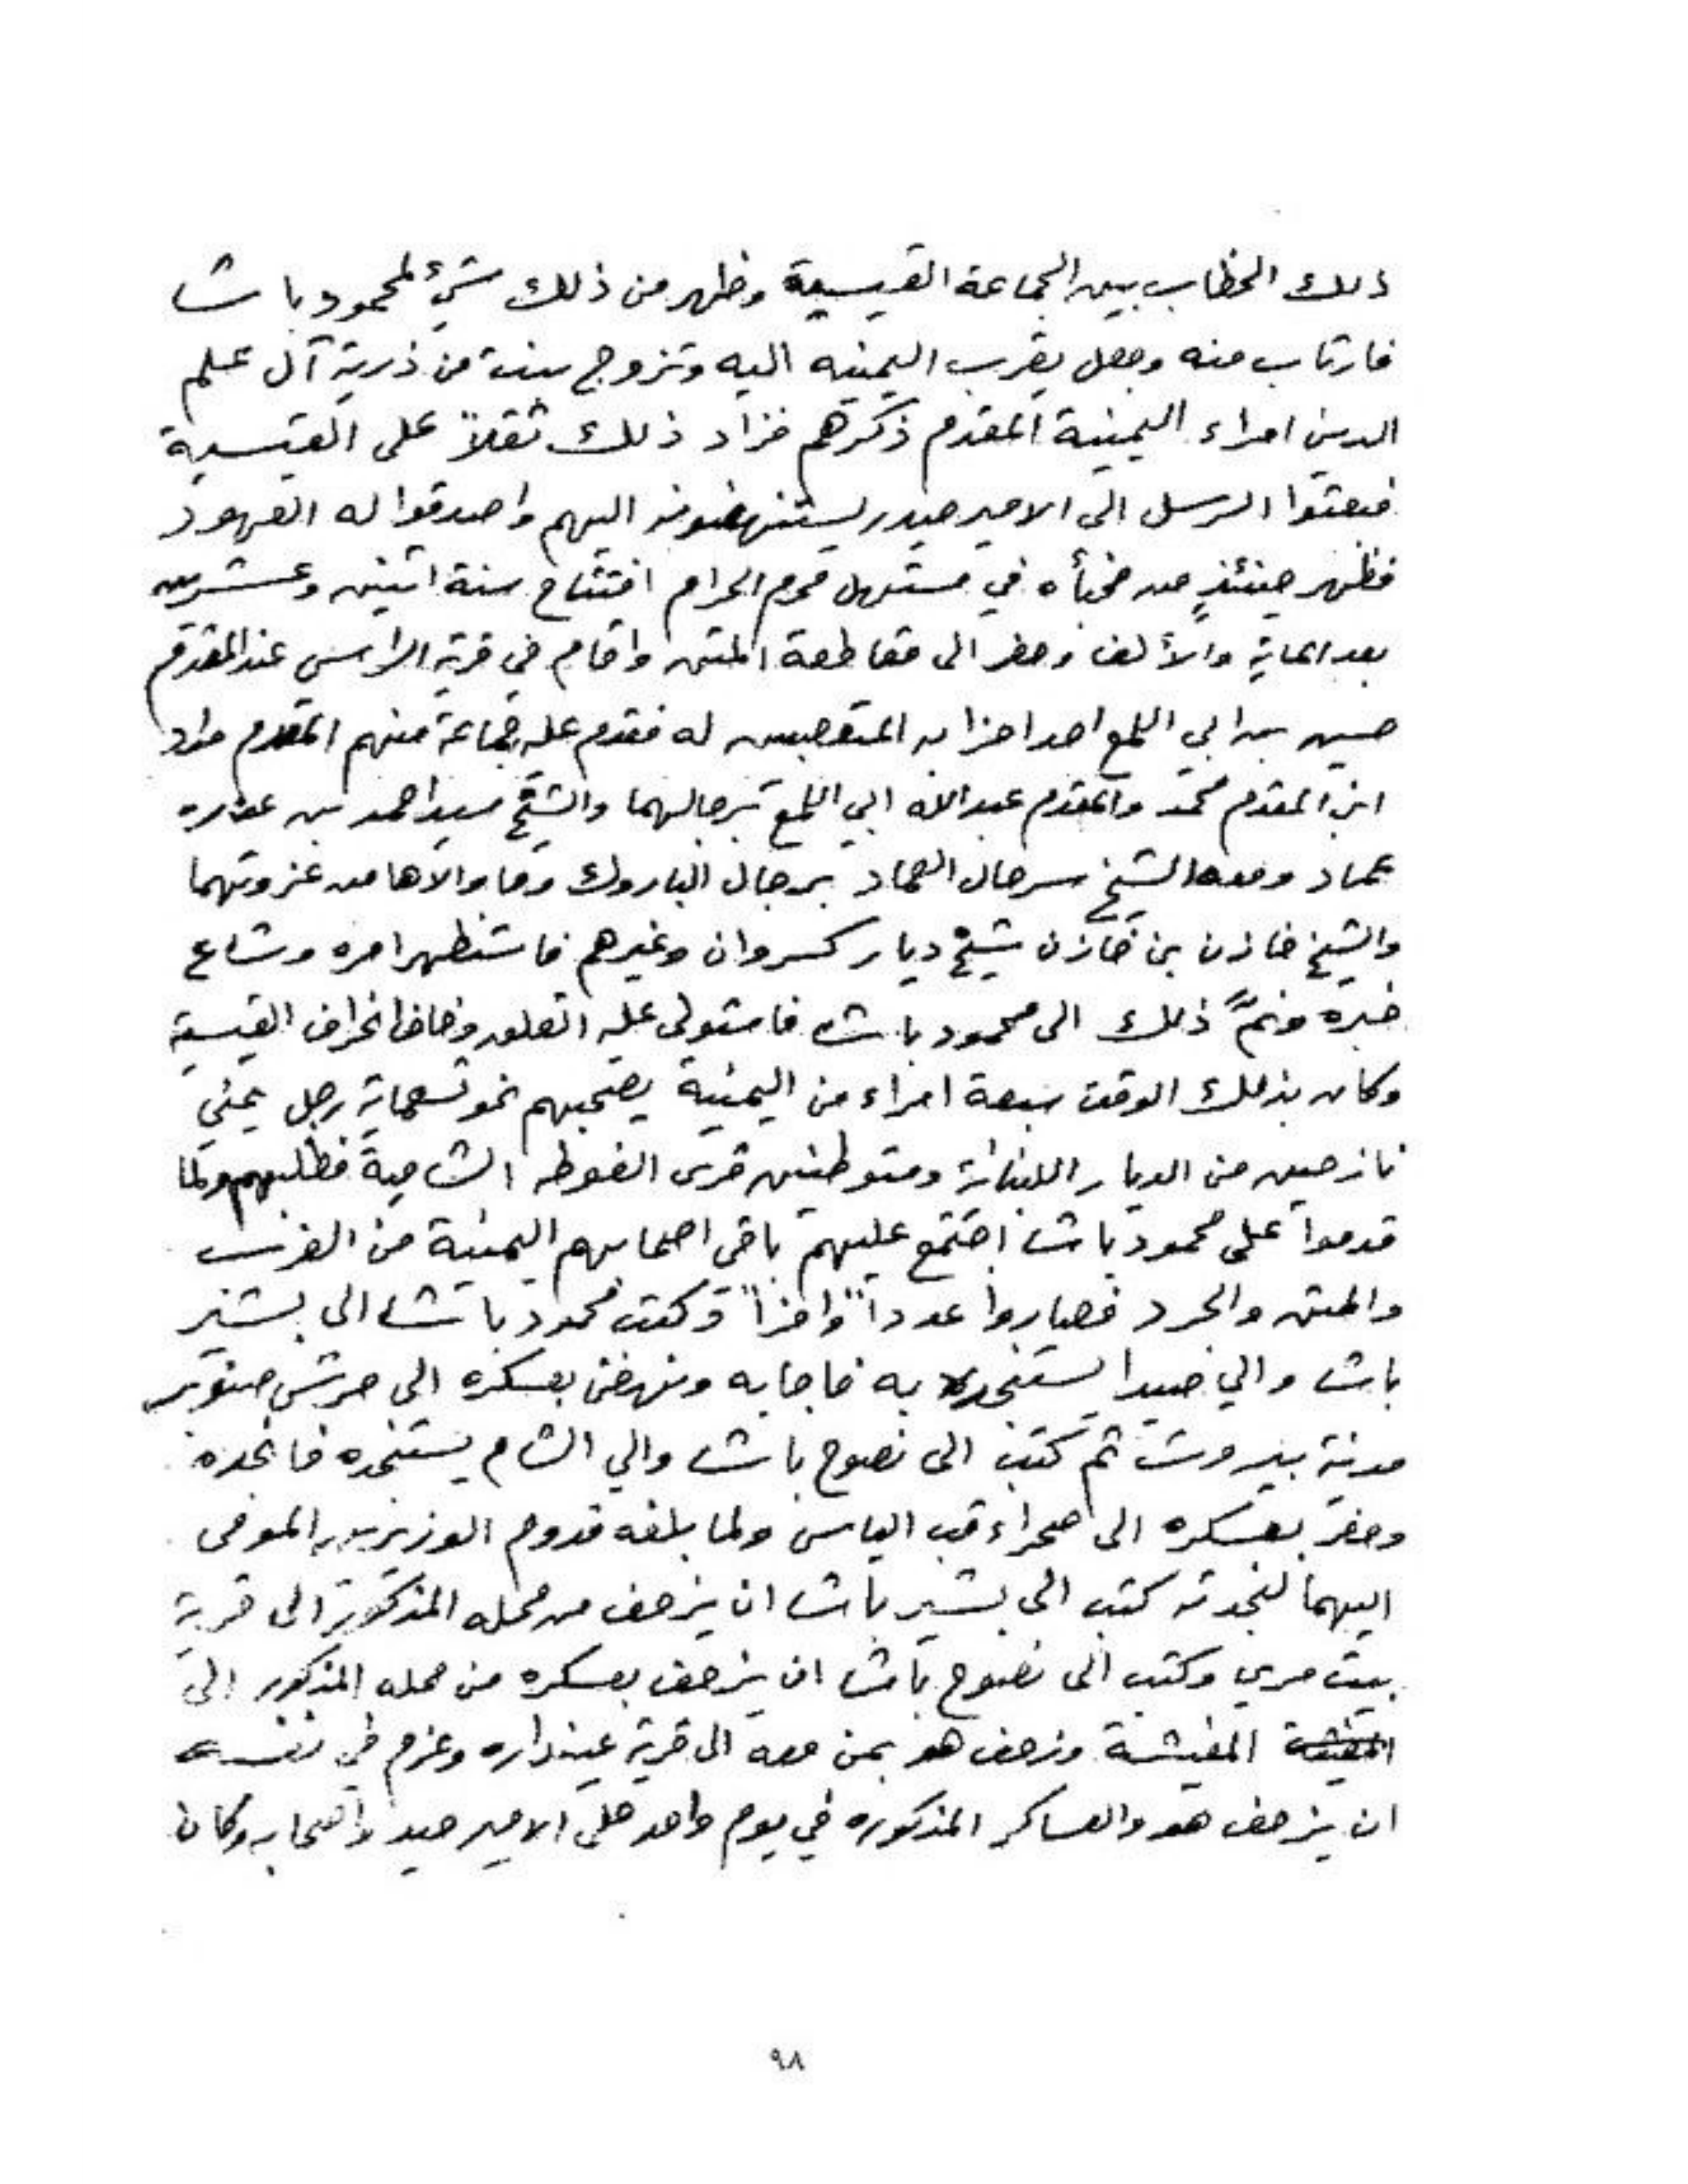 ذلك الخطاب بين الجماعة القيسية وظهر من ذلك شيء لمحمود باشا
فارتاب منه وجعل يقرب اليمنيه اليه وتزوج بنت من ذرية آل علم
الدين امراء اليمنية المقدم ذكرهم فزاد ذلك ثقلاً على القيسية
فبعثوا الرسل الى الامير حيدر يستنهضونه اليهم واصدقوا له العهود
فظهر حينئذٍ من مخبأه في مستهل محرم الحرام افتتاح سنة اثنين وعشرين
بعد الماية والألف وحضر الى مقاطعة المتن واقام في قرية الراس عند المقدم
حسين بن ابي اللمع احد احزابه المتعصبين له فقدم عليه جماعة منهم المقدم مراد
ابن المقدم محمد والمقدم عبدالله ابي اللمع برجالهما والشيخ سيد احمد بن
عماد ومعه الشيخ سرحال العماد برجال الباروك وما والاها من عزوتهما
والشيخ خازن بن خازن شيخ ديار كسروان وغيرهم فاستظهر امره وشاع
خبره ونمَّ ذلك الى محمود باشا فاستولى عليه القلق وخاف انحراف القيسية
وكان بذلك الوقت سبعة امراء من اليمنية يصحبهم نحو تسعماية رجل يمني
نازحين من الديار اللبنانية ومتوطنين قرى الغوطه الشامية فطلبهم ولما
قدموا على محمود باشا اجتمع عليهم باقي اصحابهم اليمنية من الغرب
والمتن والجرد فصاروا عدداً وافراً وكتب محمود باشا الى بشير
باشا والي صيدا يستنجد به فاجابه ونهض بعسكره الى حرش صنوبر
مدينة بيروت ثم كتب الى نصوح باشا والي الشام يستنجده فانجده
وحضر بعسكره الى صحراء قب الياس ولما بلغه قدوم الوزيرين المومى
اليهما لنجدته كتب الى بشير باشا ان يزحف من محله المذكور الى قرية
بيت مري وكتب الى نصوح باشا ان يزحف بعسكره من محله المذكور الى
المغيثة وزحف هو بمن معه الى قرية عينداره وعزم في نفسه
ان يزحف هو والعساكر المذكوره في يوم واحد على الامير حيدر واصحابه وكان
٩٨